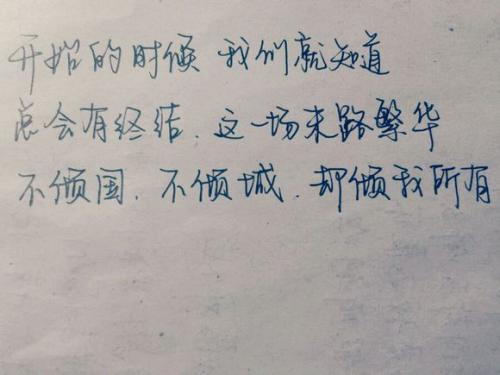 开始的时候 我们就知道
总会有终结.这一场末路繁华
不倾国.不倾城.却倾我所有